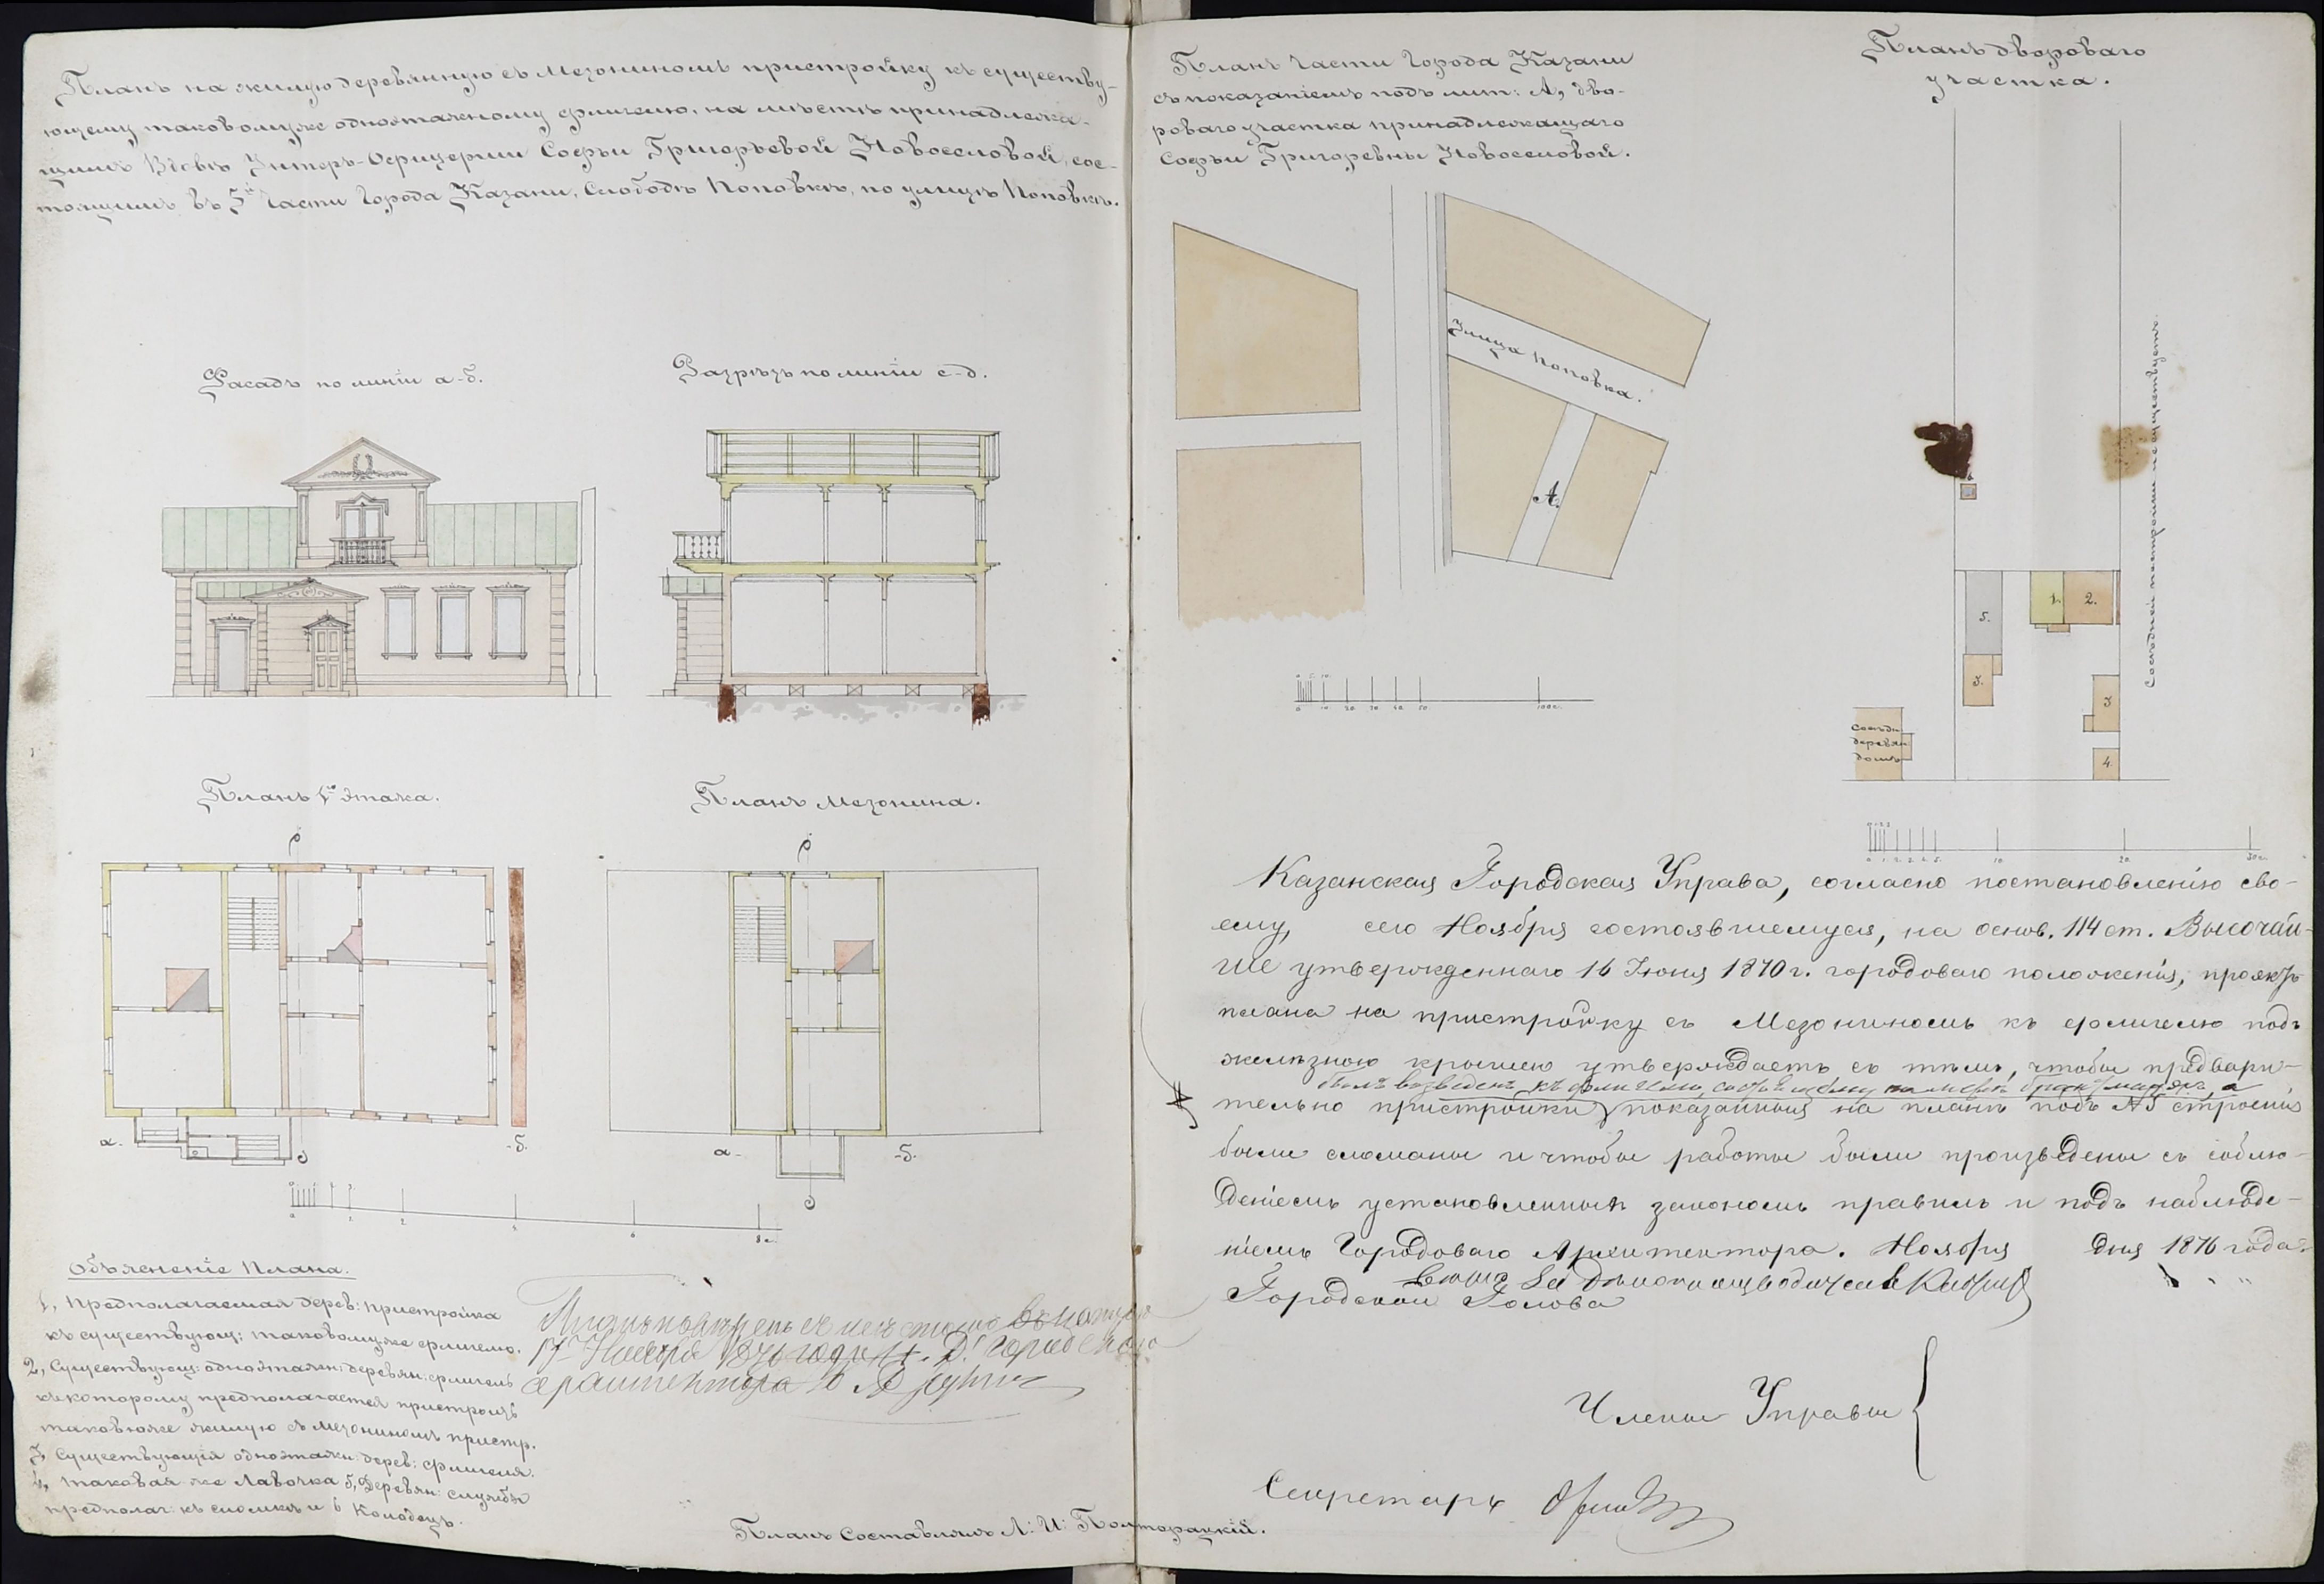 Планъ на жилую деревянную съ Мезониномъ пристройку къ существу-
ющему таковому же одноэтажному флигелю, на мѣстѣ принадлежа-
щимъ Вдовѣ Унтеръ-Офицерши Софьи Григорьевой Новоселовой, сос-
тоящимъ въ 5й Части Города Казани, Слободѣ Поповкѣ, по улицѣ Поповкѣ.
Фасадъ по линіи а-б.
Разрѣзъ по линіи с-д.
Планъ 1го этажа.
Планъ Мезонина.
а.
-б.
а-
-б.
Объясненіе Плана.
1, Предполагаемая дерев: пристройка
къ существующ: таковому же флигелю.
2, Существующ: одноэтажн: деревян: флигель
къ которому предполагается пристроить
таковую же жилую съ мезониномъ пристр.
3, Существующія одноэтажн: дерев: флигеля.
4, таковая же Лавочка 5, Деревян: службы
предполаг: къ сломкѣ и 6 Колодецъ.
17 Ноября 1876 года
архитектора
Планъ Составлялъ Л: И: Полторацкій.
Планъ Части Города Казани
съ показаніемъ подъ лит: А, дво-
роваго участка принадлежащаго
Софьи Григоревны Новоселовой.
Улица Поповка.
А.
Планъ двороваго
участка.
Сосѣдней постройки не существуетъ.
5.
1.
2.
3.
3
4.
Сосѣдн:
деревян
домъ
Казанская Городская Управа, согласно постановленію сво-
ему, сего Ноября состоявшемуся, на основ. 114 ст. Высочай-
ше утвержденнаго 16 Іюня 1870 г. городоваго положенія, проэктъ
плана на пристройку съ Мезониномъ къ флигелю подъ
желѣзною крышею утверждаетъ съ тѣмъ, чтобы предвари-
былъ возведенъ къ флигелю, а
тельно пристройки показанныя на планѣ подъ №5 строенія
были сломаны и чтобы работы были произведены съ соблю-
деніемъ установленныхъ закономъ правилъ и подъ наблюде-
ніемъ Городоваго Архитектора. Ноября дня 1876 года
Городской Голова
Члены Управы
Секретарь